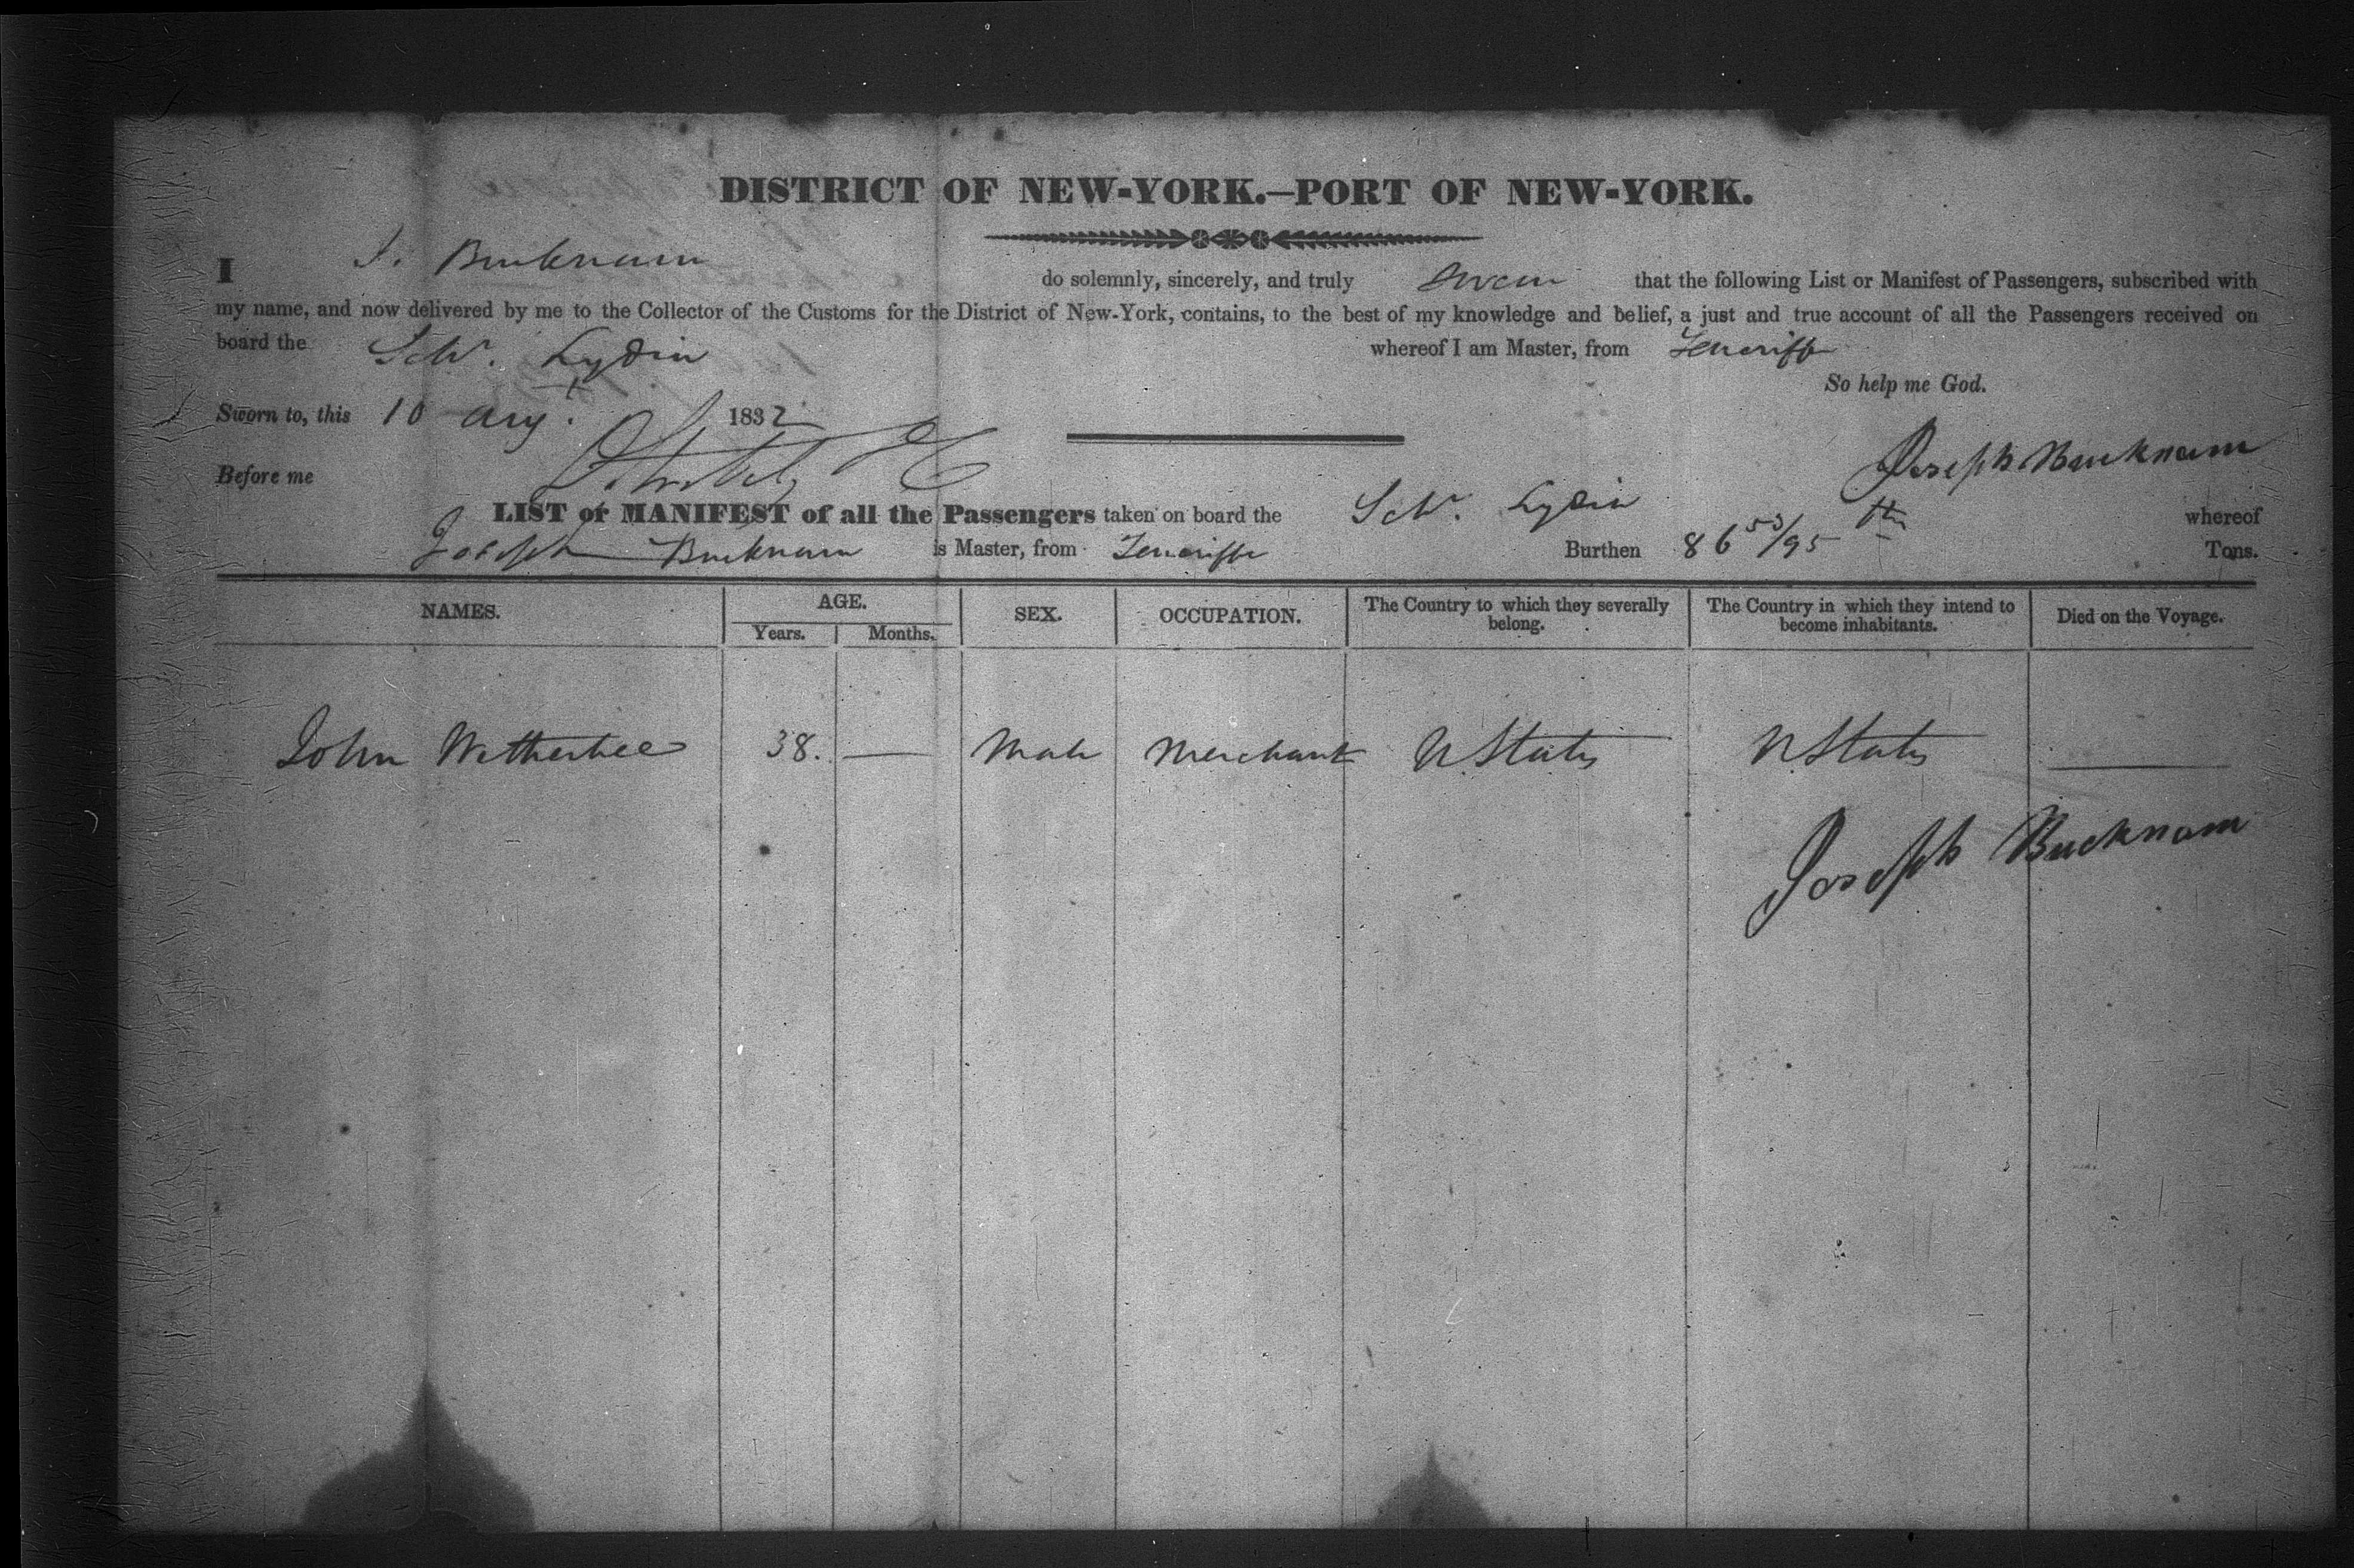 DISTRICT OF NEW-YORK.—PORT OF NEW-YORK.
I J. Bucknam do solemnly, sincerely, and truly swear that the following List or Manifest of Passengers, subscribed with
my name, and now delivered by me to the Collector of the Customs for the District of New-York, contains, to the best of my knowledge and belief, a just and true account of all the Passengers received on
board the Schr. Lydia whereof I am Master, from Teneriffe
So help me God.
Sworn to, this 10 Aug. 1832
Joseph Bucknam
Before me
LIST or MANIFEST of all the Passengers taken on board the Schr. Lydia whereof
Joseph Bucknam is Master, from Teneriffe Burthen 86 53/95 ths Tons.
NAMES. AGE. Years. Months. SEX. OCCUPATION. The Country to which they severally belong. The Country in which they intend to become inhabitants. Died on the Voyage.
John Wetherbee 38. — Male Merchant U. States U. States —
Joseph Bucknam